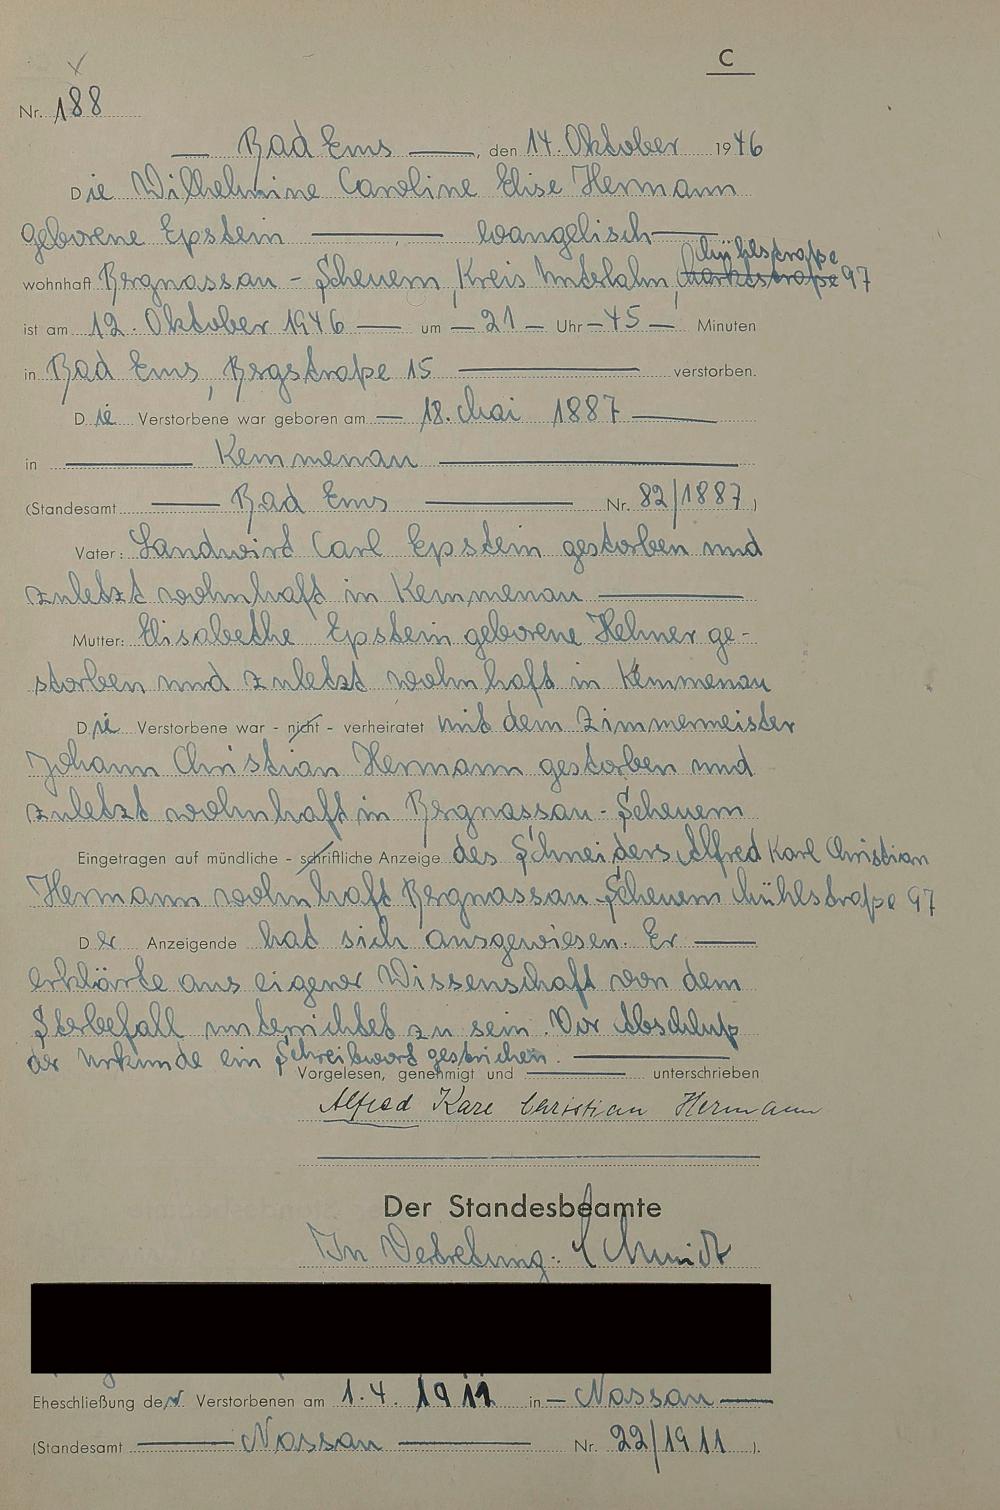 C
Nr. 188
— Bad Ems —, den 14. Oktober 1946
Die Wilhelmine Caroline Elise Hermann
geborene Epstein — evangelisch —
Mühlstraße
wohnhaft Bergnassau - Scheuern, Kreis Unterlahn, Marktstraße 97
ist am 12. Oktober 1946 — um — 21 — Uhr — 45 — Minuten
in Bad Ems, Bergstraße 15 — verstorben.
Die Verstorbene war geboren am — 18. Mai 1887 —
in — Kemmenau —
(Standesamt — Bad Ems — Nr. 82/1887)
Vater: Landwirt Carl Epstein gestorben und
zuletzt wohnhaft in Kemmenau —
Mutter: Elisabethe Epstein geborene Hehner ge-
storben und zuletzt wohnhaft in Kemmenau
Die Verstorbene war - nicht - verheiratet mit dem Zimmermeister
Johann Christian Hermann gestorben und
zuletzt wohnhaft in Bergnassau - Scheuern
Eingetragen auf mündliche - schriftliche Anzeige des Schneiders Alfred Karl Christian
Hermann wohnhaft Bergnassau - Scheuern Mühlstraße 97
Der Anzeigende hat sich ausgewiesen. Er —
erklärte aus eigener Wissenschaft von dem
Sterbefall unterrichtet zu sein. Vor Abschluß
der Urkunde ein Schreibwort gestrichen. —
Vorgelesen, genehmigt und — unterschrieben
Alfred Karl Christian Hermann
Der Standesbeamte
In Vertretung: Schmidt
Eheschließung der Verstorbenen am 1.4. 1911 in — Nassau —
(Standesamt — Nassau — Nr. 22/1911).